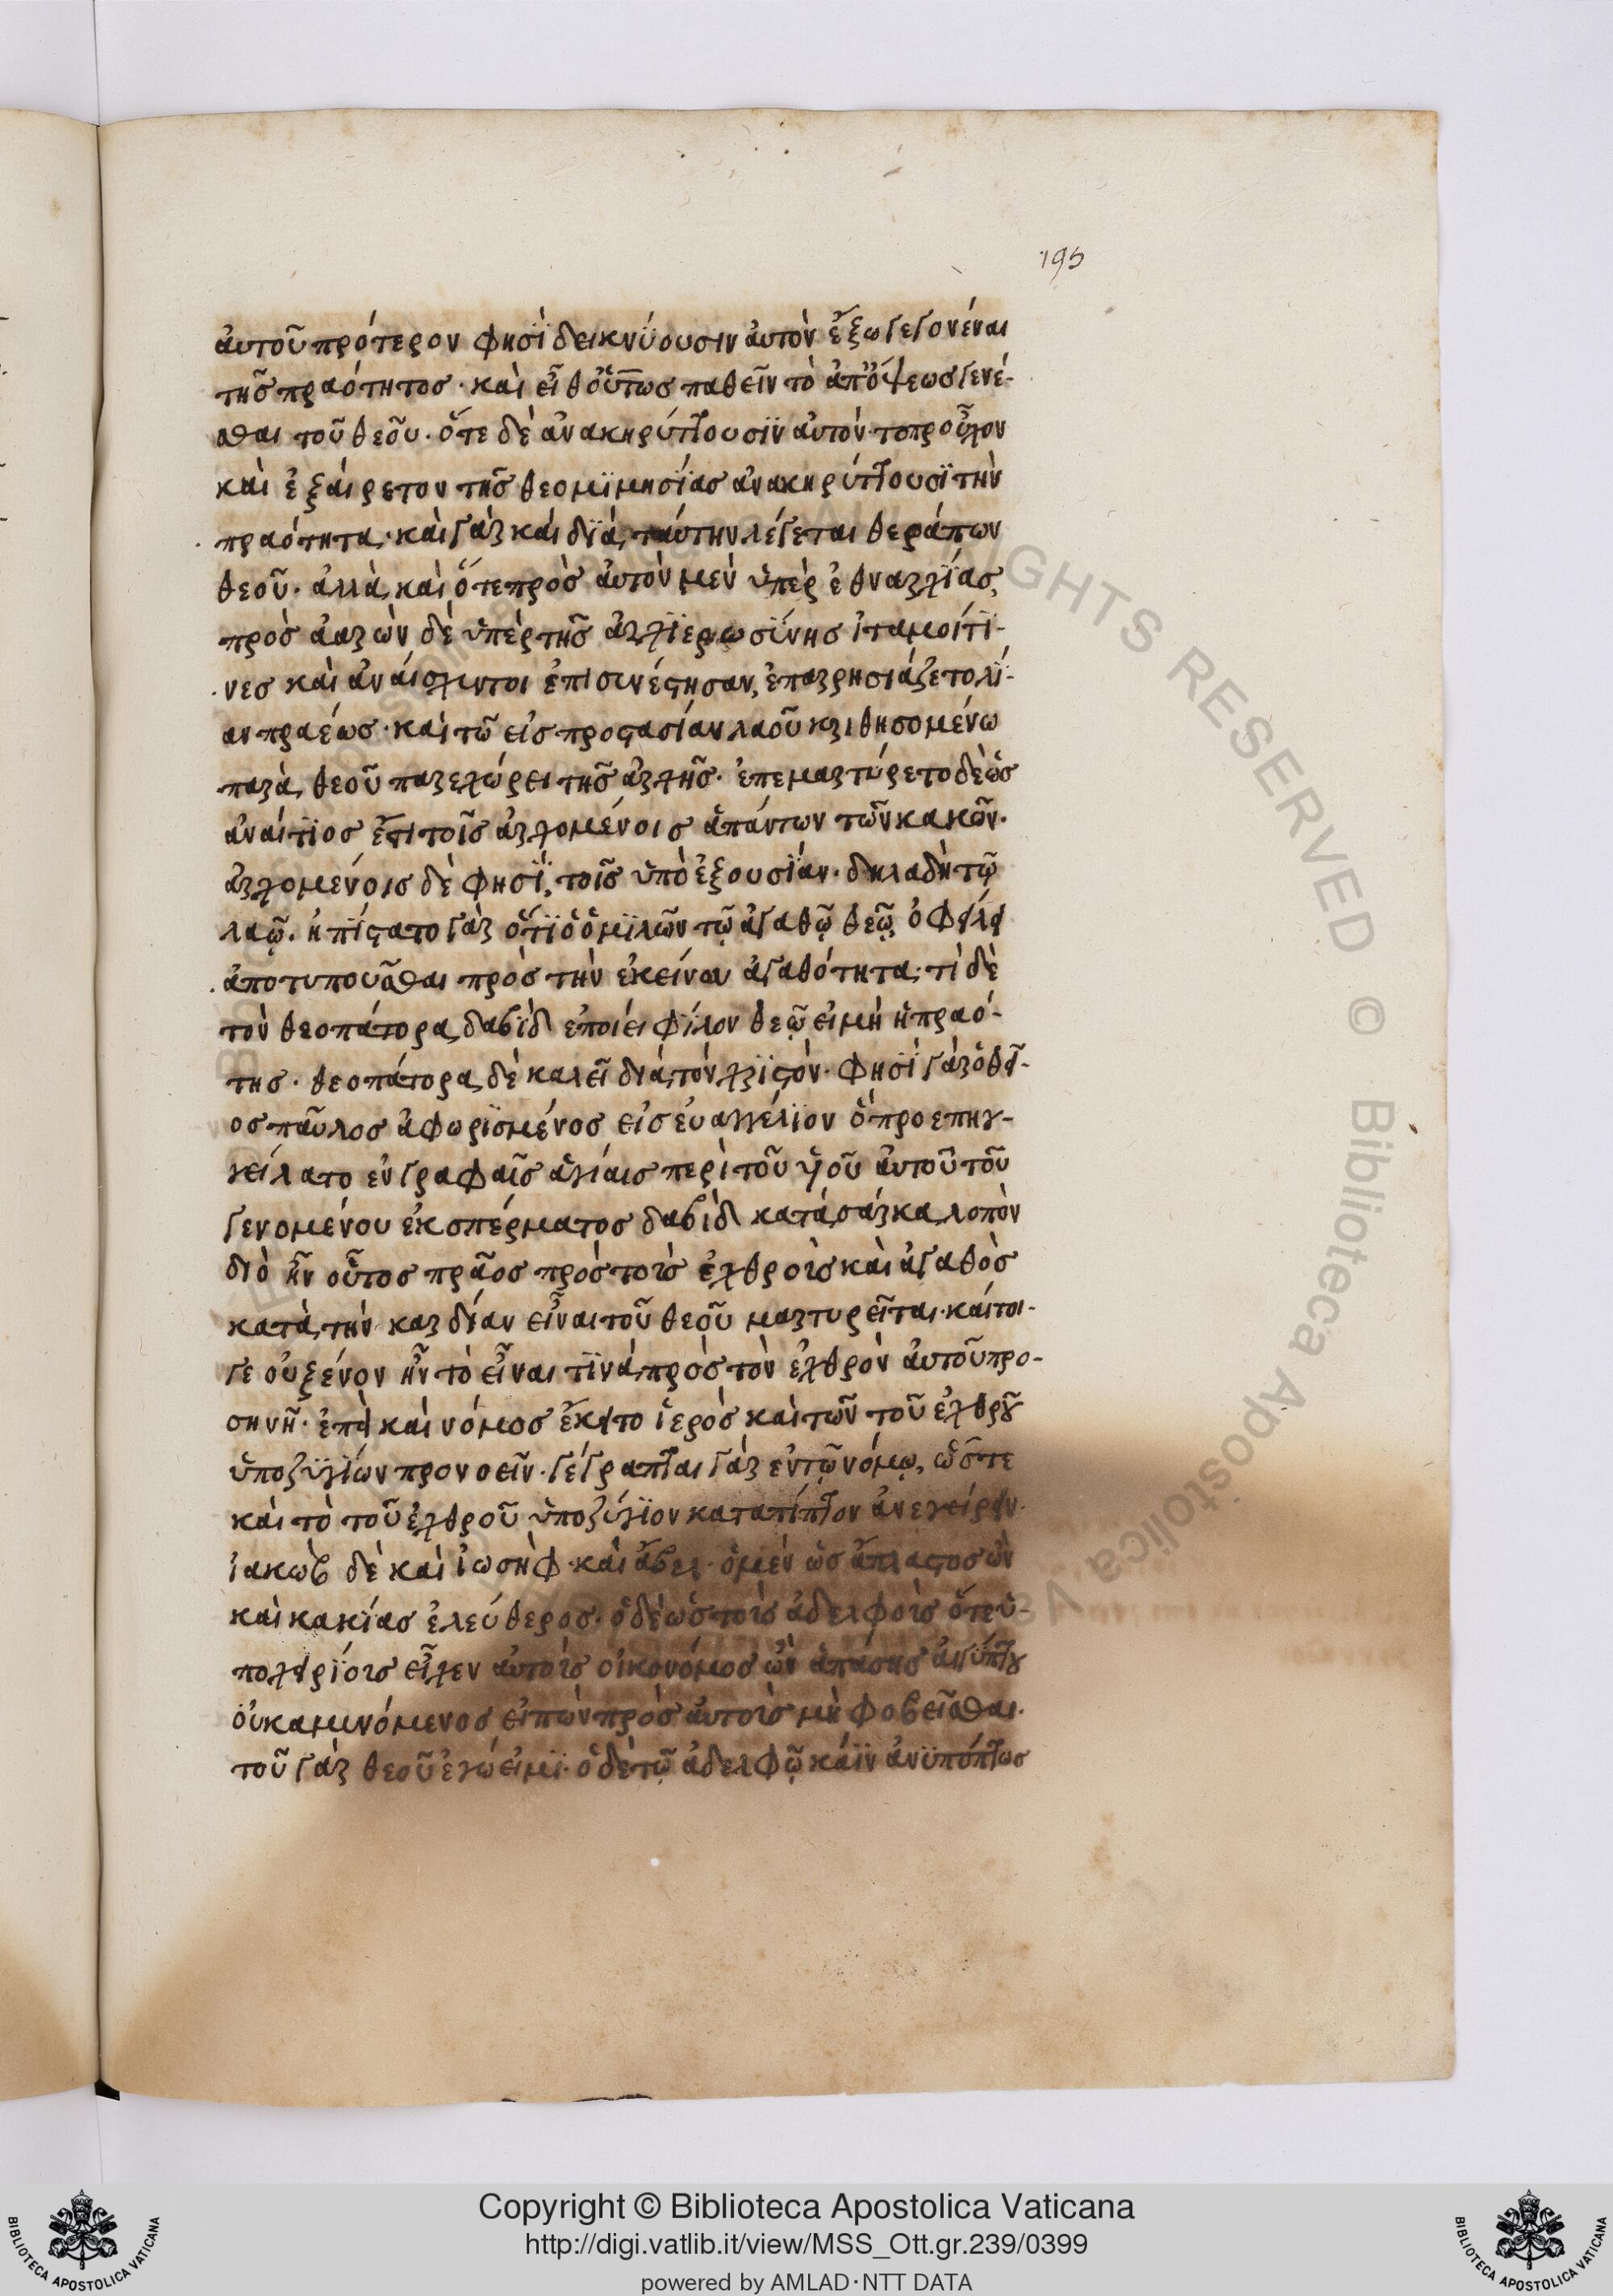 195
αὐτοῦ πρότερον φησῒ δεικνύουσιν αὐτὸν ἔξω γεγονέναι
τῆς πραότητος · καὶ εἶθ οὕτως παθεῖν τὸ ἀπόψεως γενέ-
σθαι τοῦ θεοῦ · ὅτε δὲ ἀνακηρύττουσϊν αὐτὸν · τὸ προὖχον
καὶ ἐξαίρετον τῆς θεομϊμησίας ἀνακηρύττουσϊ τὴν
πραότητα · καὶ γὰρ καὶ δϊὰ ταύτην λέγεται θεράπων
θεοῦ · ἀλλὰ καὶ ὅτε πρὸς αὐτὸν μὲν ὑπὲρ ἐθναρχίας,
πρὸς ἀαρὼν δὲ ὑπὲρ τῆς ἀρχϊερωσύνης ἰταμοί τϊ-
νες καὶ ἀναίσχυντοι ἐπισυνέστησαν, ἐπαρρησιάζετο λί-
αν πραέως · καὶ τῶ εἰς προστασίαν λαοῦ κριθησομένω
παρὰ θεοῦ παρεχώρει τῆς ἀρχῆς · ἐπεμαρτύρετο δὲ ὡς
ἀναίτϊος ἔστι τοῖς ἀρχομένοις ἁπάντων τῶν κακῶν ·
ἀρχομένοις δὲ φησῒ, τοῖς ὑπὸ ἐξουσίαν · δηλαδὴ τῷ
λαῷ · ἠπίστατο γὰρ ὅτϊ ὁ ὁμϊλῶν τῷ ἀγαθῷ θεῷ, ὀφείλει
ἀποτυποῦσθαι πρὸς τὴν ἐκείνου ἀγαθότητα · τὶ δὲ
τὸν θεοπάτορα δαβϊδ ἐποίει φίλον θεῷ εἰ μὴ ἡ πραό-
της · θεοπάτορα δὲ καλεῖ διὰ τὸν χρϊστὸν · φησῒ γὰρ ὁ θεῖ-
ος παῦλος ἀφωρϊσμένος εἰς εὐαγγέλϊον ὃ προεπηγ-
γείλατο ἐν γραφαῖς ἁγίαις περὶ τοῦ ὑιοῦ αὐτοῦ τοῦ
γενομένου ἐκ σπέρματος δαβὶδ κατὰ σάρκα, λοιπὸν
διὸ ἦν οὗτος πρᾶος πρὸς τοὺς ἐχθροὺς καὶ ἀγαθὸς
κατὰ τὴν καρδίαν εἶναι τοῦ θεοῦ μαρτυρεῖται · καίτοι-
γε οὐ ξένον ἦν τὸ εἶναι τϊνὰ πρὸς τὸν ἐχθρὸν αὐτοῦ προ-
σηνῆ · ἐπεὶ καὶ νόμος ἔκειτο ἱερὸς καὶ τῶν τοῦ ἐχθροῦ
ὑποζϋγίων προνοεῖν · γέγραπται γὰρ ἐν τῷ νόμῳ, ὥστε
καὶ τὸ τοῦ ἐχθροῦ ὑποζύγϊον καταπίπτον ἀνεγείρειν ·
ἰακὼβ δὲ καὶ ἰωσὴφ · καὶ ἄβελ · ὁ μὲν ὡς ἄπλαστος ὢν
καὶ κακίας ἐλεύθερος · ὁ δὲ ὡς τοὺς ἀδελφοὺς ὅτε ὑ-
ποχειρϊους εἶχεν αὐτοὺς οἰκονόμος ὢν ἁπάσης αἰγύπτου
οὐκ ἀμυνόμενος εἰπὼν πρὸς αὐτοὺς μὴ φοβεῖσθαι ·
τοῦ γὰρ θεοῦ ἐγώ εἰμϊ · ὁ δὲ τῷ ἀδελφῷ κάϊν ἀνϋπόπτως
Copyright © Biblioteca Apostolica Vaticana
http://digi.vatlib.it/view/MSS_Ott.gr.239/0399
powered by AMLAD·NTT DATA
BIBLIOTECA APOSTOLICA VATICANA
BIBLIOTECA APOSTOLICA VATICANA